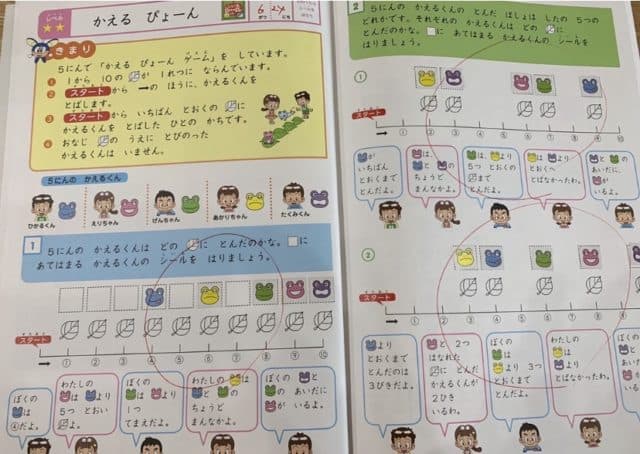 レベル
かえる ぴょーん
6 24
がつ にち
きまり
5にんで 「かえる ぴょーん ゲーム」を しています。
① 1から 10の が 1れつに ならんでいます。
② スタートから ➡の ほうに、かえるくんを
とばします。
③ スタートから いちばん とおくの に
かえるくんを とばした ひとの かちです。
④ おなじ の うえに とびのった
かえるくんは いません。
5にんの かえるくん
ひかるくん えりちゃん げんちゃん あかりちゃん たくみくん
1 5にんの かえるくんは どの に とんだのかな。□に
あてはまる かえるくんの シールを はりましょう。
スタート
① ② ③ ④ ⑤ ⑥ ⑦ ⑧ ⑨ ⑩
ぼくの
は
④だよ。
わたしの
は より
5つ とおい
よ。
ぼくの
は より
1つ
てまえだよ。
わたしの は
と の
ちょうど
まんなかよ。
ぼくの と
の あいだに
が いるよ。
2 5にんの かえるくんの とんだ ばしょは したの 5つの
どれかです。それぞれの かえるくんは どの に
とんだのかな。□に あてはまる かえるくんの シールを
はりましょう。
①
スタート
① ② ③ ④ ⑤ ⑥ ⑦ ⑧
が
いちばん
とおくまで
とんだよ。
は、
と の
ちょうど
まんなかよ。
は、 より
5つ とおくの
まで
とんだよ。
は より
とおくへ
とばなかったわ。
と の
あいだに、
が
いるよ。
②
スタート
① ② ③ ④ ⑤ ⑥ ⑦ ⑧ ⑨
より
とおくまで
とんだのは
3びきだよ。
と 2つ
はなれた
に とんだ
かえるくんが
2ひき
いるわ。
ぼくの
は
より 3つ
とおくまで
とんだよ。
わたしの
は
より
とばなかったわ。